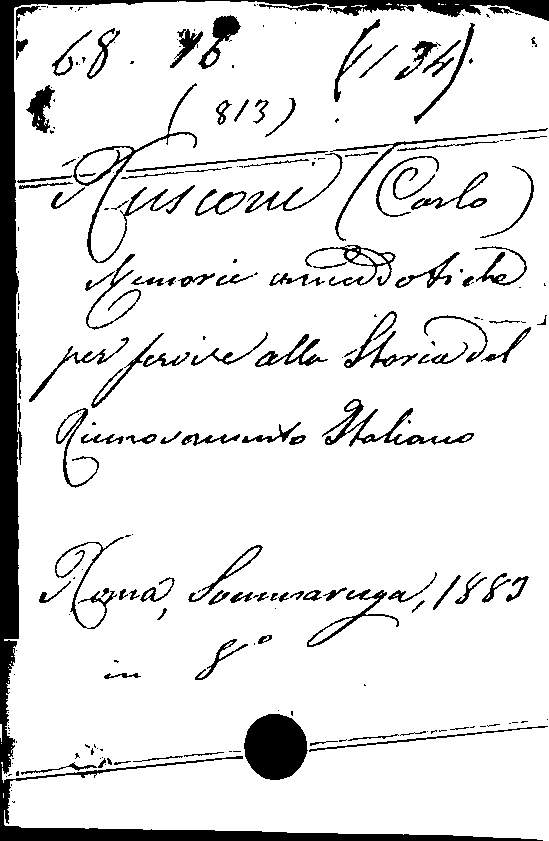 68. 16. (1134).
(813)
Rusconi (Carlo)
Memorie aneddotiche
per servire alla Storia del
Rinnovamento Italiano
Roma, Sommaruga, 1883
in 8°